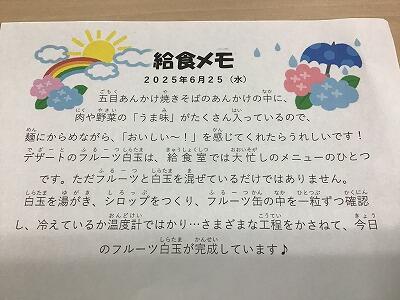 給食メモ
2025年6月25(水)
五目あんかけ焼きそばのあんかけの中に、
肉や野菜の「うま味」がたくさん入っているので、
麺にからめながら、「おいしい～!」を感じてくれたらうれしいです!
デザートのフルーツ白玉は、給食室では大忙しのメニューのひとつ
です。ただフルーツと白玉を混ぜているだけではありません。
白玉を湯がき、シロップをつくり、フルーツ缶の中を一粒ずつ確認
し、冷えているか温度計ではかり…さまざまな工程をかさねて、今日
のフルーツ白玉が完成しています♪